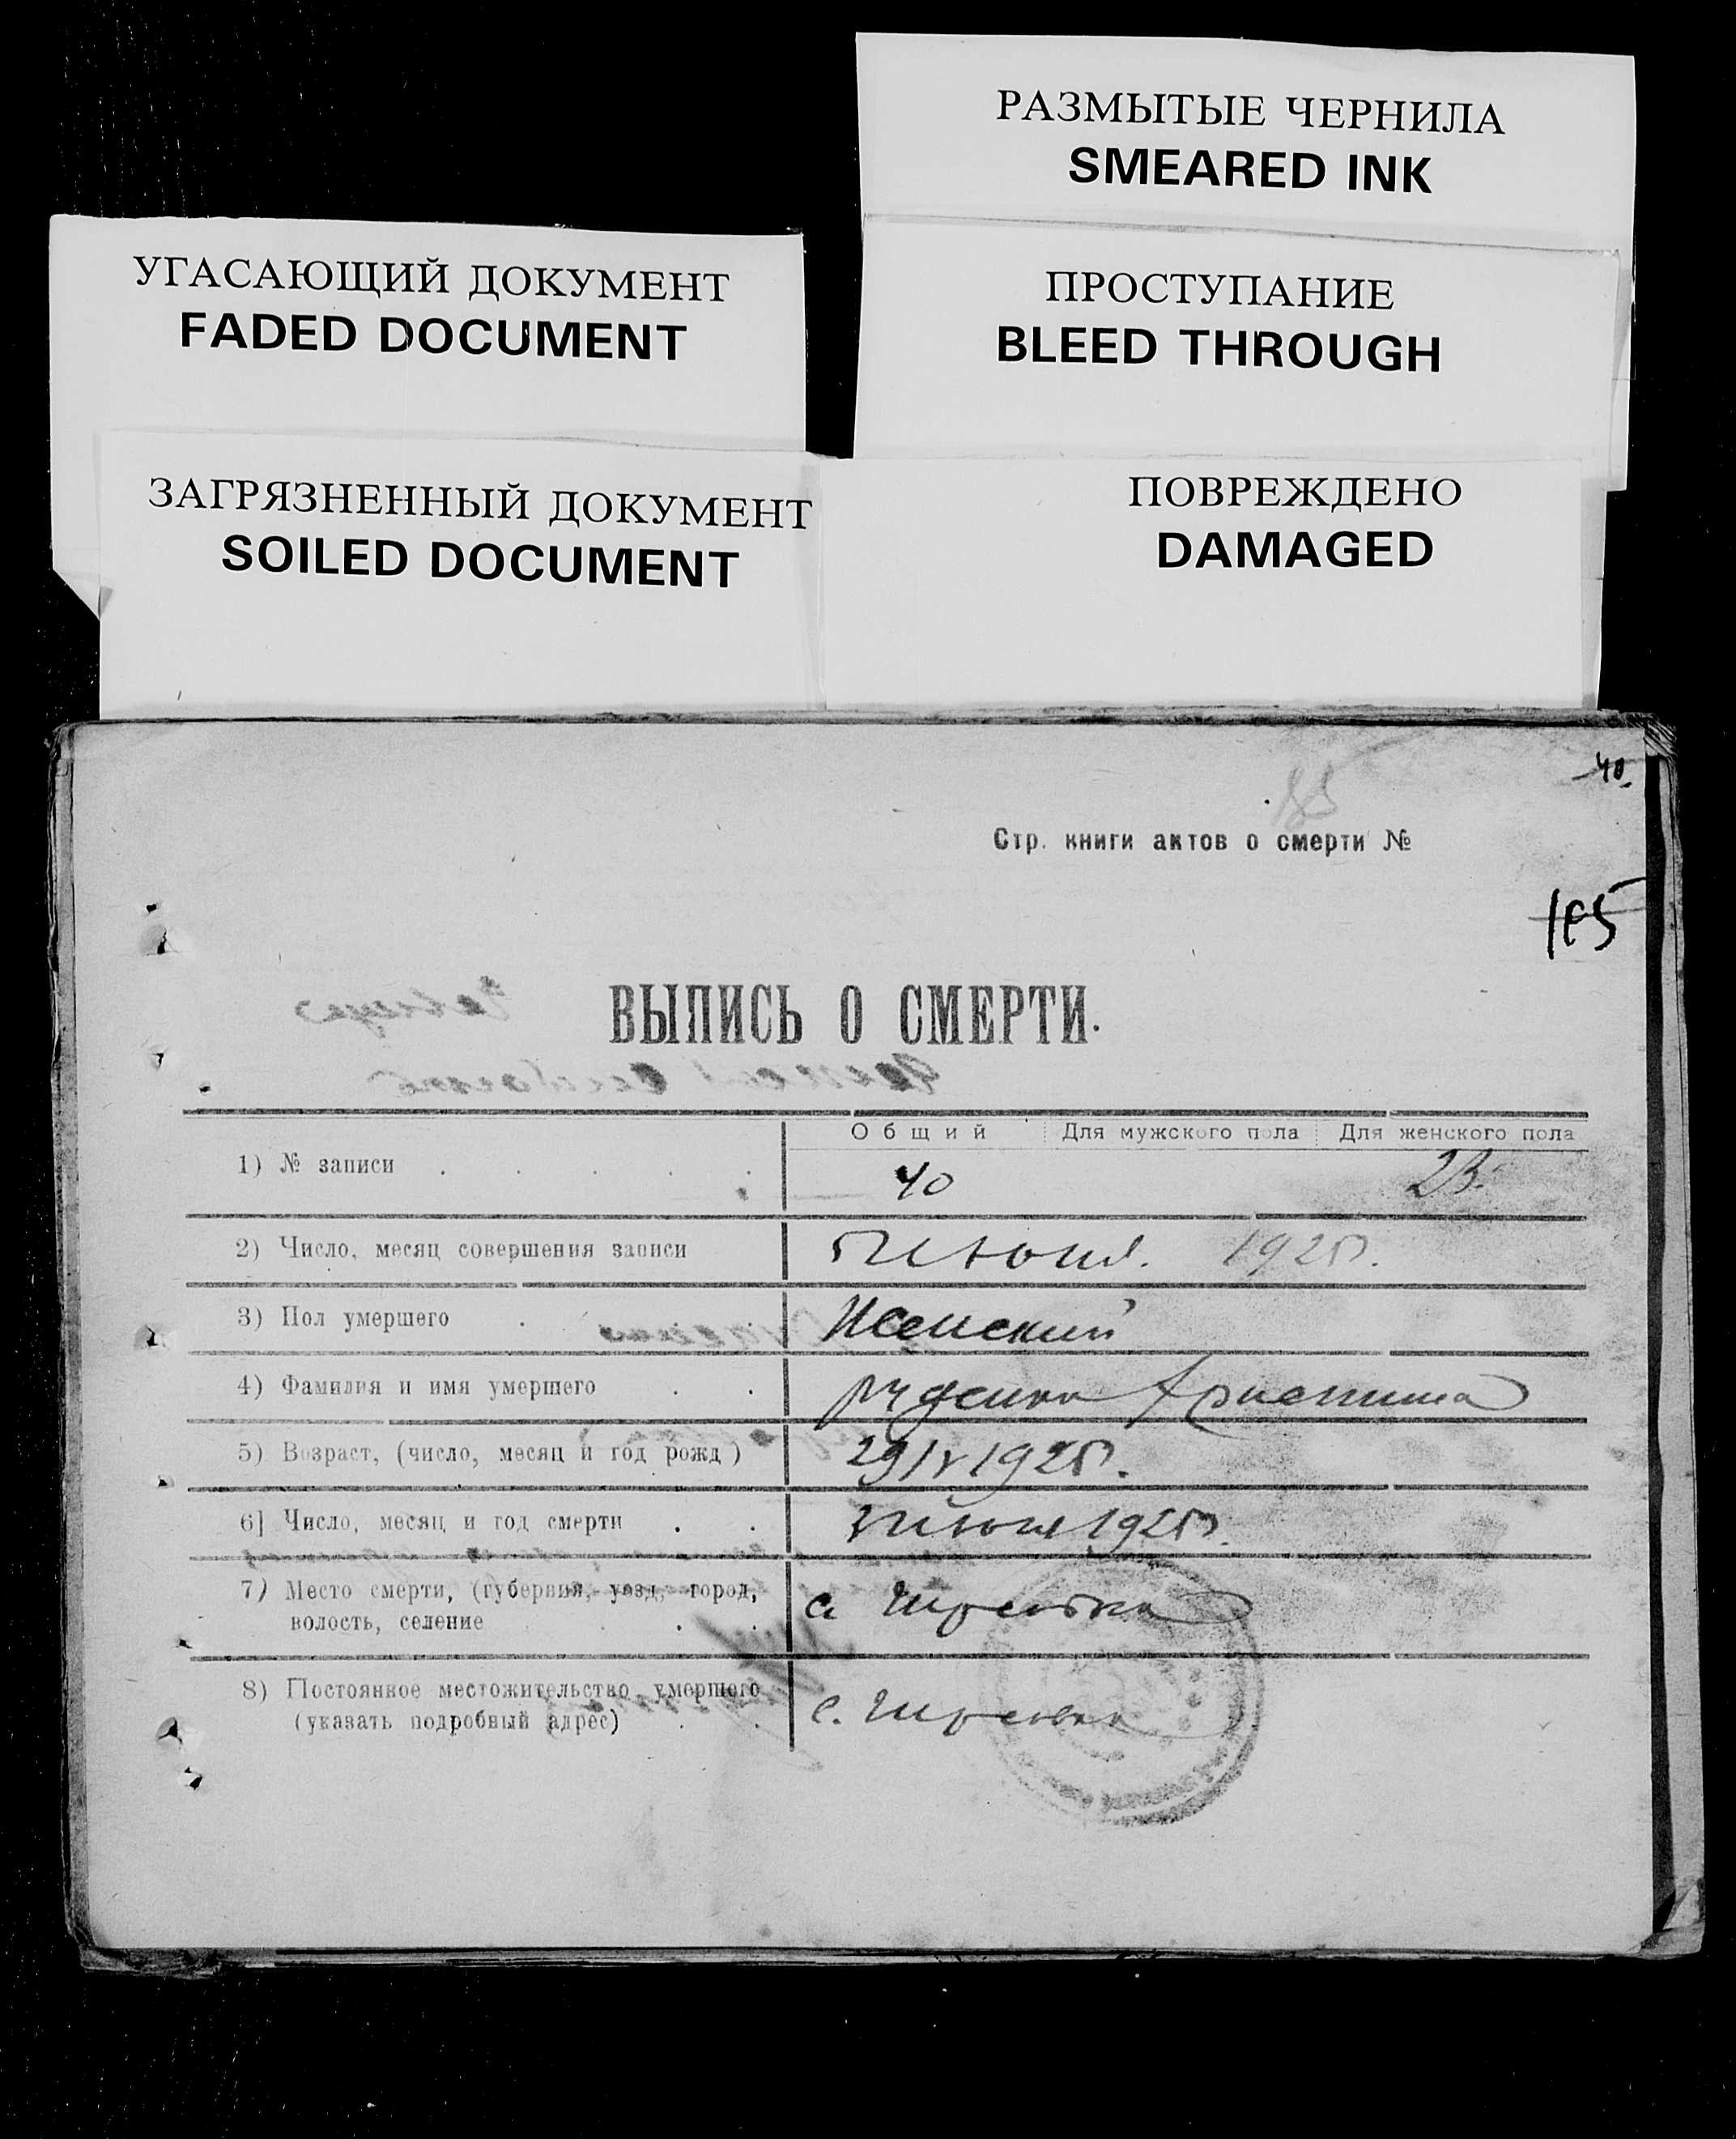 РАЗМЫТЫЕ ЧЕРНИЛА
SMEARED INK
УГАСАЮЩИЙ ДОКУМЕНТ
FADED DOCUMENT
ПРОСТУПАНИЕ
BLEED THROUGH
ЗАГРЯЗНЕННЫЙ ДОКУМЕНТ
SOILED DOCUMENT
ПОВРЕЖДЕНО
DAMAGED
40
Стр. книги актов о смерти №
ВЫПИСЬ О СМЕРТИ.
Общий Для мужского пола Для женского пола
1) № записи 40 23
2) Число, месяц совершения записи 5 Июня. 1925.
3) Пол умершего Женский
4) Фамилия и имя умершего Руденко
5) Возраст, (число, месяц и год рожд) 1925.
6] Число, месяц и год смерти Июня 1925.
7) Место смерти, (губерния, уезд, город,
волость, селение с.
8) Постоянное местожительство умершего
(указать подробный адрес) с.